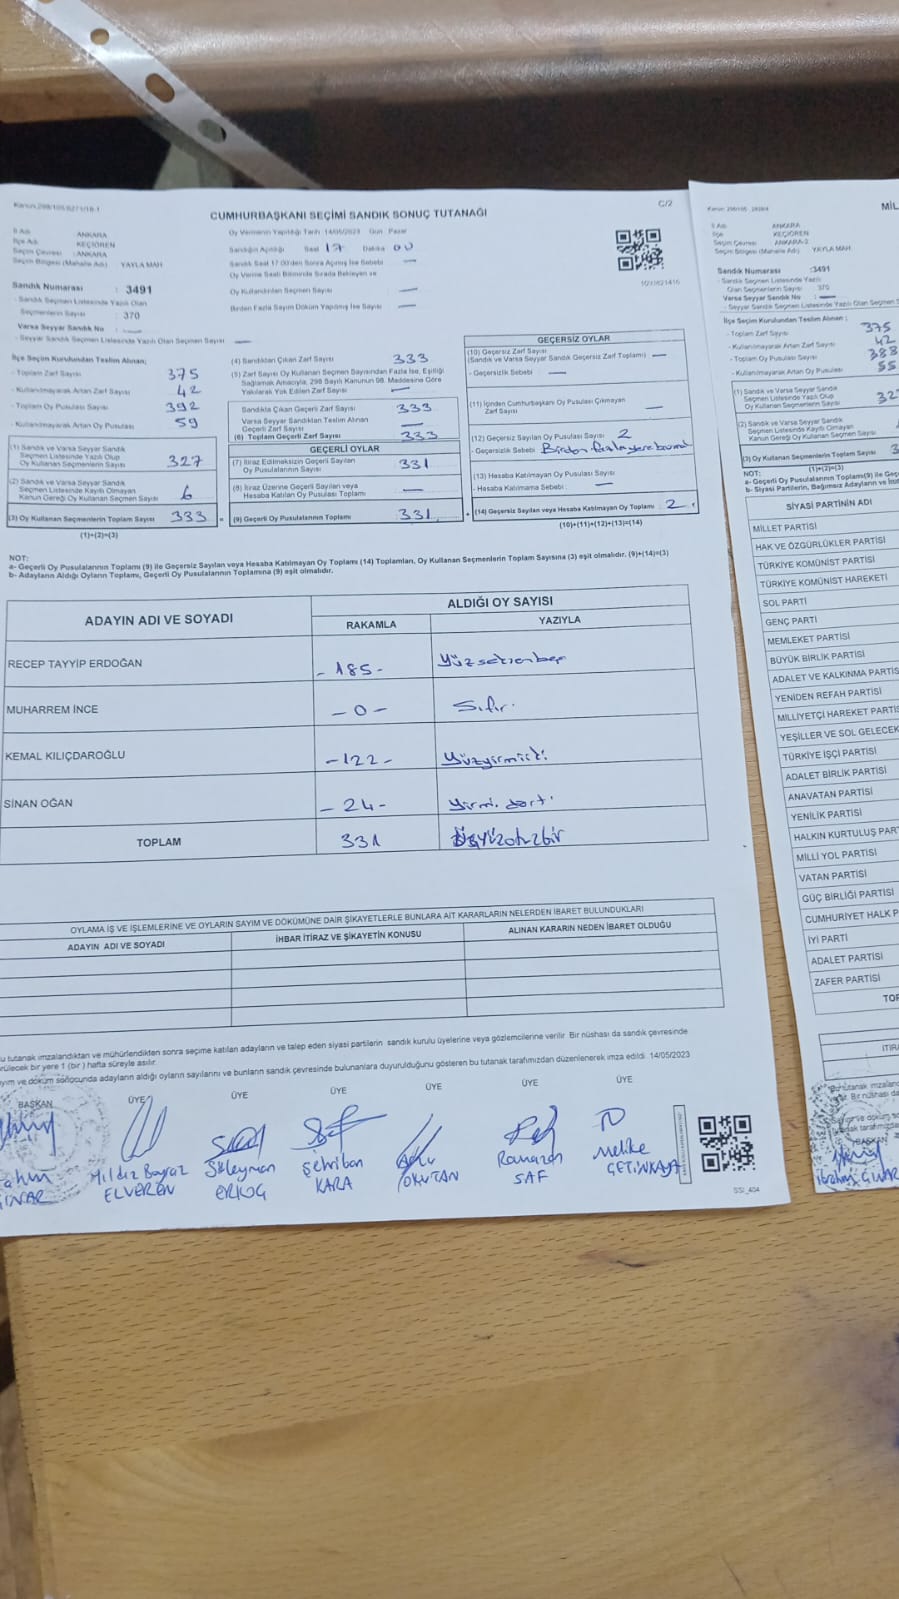 Kanun:298/105,6271/18-1
C/2
CUMHURBAŞKANI SEÇİMİ SANDIK SONUÇ TUTANAĞI
İl Adı : ANKARA
İlçe Adı : KEÇİÖREN
Seçim Çevresi : ANKARA
Seçim Bölgesi (Mahalle Adı) : YAYLA MAH
Sandık Numarası : 3491
- Sandık Seçmen Listesinde Yazılı Olan
Seçmenlerin Sayısı : 370
Varsa Seyyar Sandık No : —
- Seyyar Sandık Seçmen Listesinde Yazılı Olan Seçmen Sayısı —
Oy Vermenin Yapıldığı Tarih : 14/05/2023 Gün : Pazar
Sandığın Açıldığı Saat 17 Dakika 00
Sandık Saat 17.00'den Sonra Açılmış İse Sebebi —
Oy Verme Saati Bitiminde Sırada Bekleyen ve
Oy Kullandırılan Seçmen Sayısı —
Birden Fazla Sayım Döküm Yapılmış İse Sayısı —
İlçe Seçim Kurulundan Teslim Alınan;
- Toplam Zarf Sayısı 375
- Kullanılmayarak Artan Zarf Sayısı 42
- Toplam Oy Pusulası Sayısı 392
- Kullanılmayarak Artan Oy Pusulası Sayısı 59
(1) Sandık ve Varsa Seyyar Sandık
Seçmen Listesinde Yazılı Olup
Oy Kullanan Seçmenlerin Sayısı 327
(2) Sandık ve Varsa Seyyar Sandık
Seçmen Listesinde Kayıtlı Olmayan
Kanun Gereği Oy Kullanan Seçmen Sayısı 6
(3) Oy Kullanan Seçmenlerin Toplam Sayısı 333
(1)+(2)=(3)
(4) Sandıktan Çıkan Zarf Sayısı 333
(5) Zarf Sayısı Oy Kullanan Seçmen Sayısından Fazla İse, Eşitliği
Sağlamak Amacıyla, 298 Sayılı Kanunun 98. Maddesine Göre
Yakılarak Yok Edilen Zarf Sayısı —
Sandıkta Çıkan Geçerli Zarf Sayısı 333
Varsa Seyyar Sandıktan Alınan
Geçerli Zarf Sayısı —
(6) Toplam Geçerli Zarf Sayısı 333
GEÇERLİ OYLAR
(7) İtiraz Edilmeksizin Geçerli Sayılan
Oy Pusulalarının Sayısı 331
(8) İtiraz Üzerine Geçerli Sayılan veya
Hesaba Katılan Oy Pusulası Toplamı —
(9) Geçerli Oy Pusulalarının Toplamı 331
GEÇERSİZ OYLAR
(10) Geçersiz Zarf Sayısı
(Sandık ve Varsa Seyyar Sandık Geçersiz Zarf Toplamı) —
- Geçersizlik Sebebi : —
(11) İçinden Cumhurbaşkanı Oy Pusulası Çıkmayan
Zarf Sayısı —
(12) Geçersiz Sayılan Oy Pusulası Sayısı 2
- Geçersizlik Sebebi : Birden fazla yere basma
(13) Hesaba Katılmayan Oy Pusulası Sayısı
- Hesaba Katılmama Sebebi : —
(14) Geçersiz Sayılan veya Hesaba Katılmayan Oy Toplamı 2
(10)+(11)+(12)+(13)=(14)
NOT:
a- Geçerli Oy Pusulalarının Toplamı (9) ile Geçersiz Sayılan veya Hesaba Katılmayan Oy Toplamı (14) Toplamları, Oy Kullanan Seçmenlerin Toplam Sayısına (3) eşit olmalıdır. (9)+(14)=(3)
b- Adayların Aldığı Oyların Toplamı, Geçerli Oy Pusulalarının Toplamına (9) eşit olmalıdır.
ADAYIN ADI VE SOYADI
ALDIĞI OY SAYISI
RAKAMLA YAZIYLA
RECEP TAYYİP ERDOĞAN - 185 - Yüzseksenbeş
MUHARREM İNCE - 0 - Sıfır.
KEMAL KILIÇDAROĞLU - 122 - Yüzyirmiiki
SİNAN OĞAN - 24 - Yirmi dört
TOPLAM 331 Üçyüzotuzbir
OYLAMA İŞ VE İŞLEMLERİNE VE OYLARIN SAYIM VE DÖKÜMÜNE DAİR ŞİKAYETLERLE BUNLARA AİT KARARLARIN NELERDEN İBARET BULUNDUKLARI
ADAYIN ADI VE SOYADI İHBAR İTİRAZ VE ŞİKAYETİN KONUSU ALINAN KARARIN NEDEN İBARET OLDUĞU
u tutanak imzalandıktan ve mühürlendikten sonra seçime katılan adayların ve talep eden siyasi partilerin sandık kurulu üyelerine veya gözlemcilerine verilir. Bir nüshası da sandık çevresinde
rülecek bir yere 1 (bir) hafta süreyle asılır.
yım ve döküm sonucunda adayların aldığı oyların sayılarını ve bunların sandık çevresinde bulunanlara duyurulduğunu gösteren bu tutanak tarafımızdan düzenlenerek imza edildi. 14/05/2023
BAŞKAN ÜYE ÜYE ÜYE ÜYE ÜYE ÜYE
Yıldız Boyraz Süleyman Şehriban Ramazan Melike
ELVEREN KARA OKUTAN SAF ÇETİNKAYA
SSİ_404
MİL
İl Adı : ANKARA
İlçe : KEÇİÖREN
Seçim Çevresi : ANKARA-2
Seçim Bölgesi (Mahalle Adı) : YAYLA MAH
Sandık Numarası :3491
- Sandık Seçmen Listesinde Yazılı
Olan Seçmenlerin Sayısı : 370
Varsa Seyyar Sandık No : —
- Seyyar Sandık Seçmen Listesinde Yazılı Olan Seçmen S
İlçe Seçim Kurulundan Teslim Alınan ;
- Toplam Zarf Sayısı 375
- Kullanılmayarak Artan Zarf Sayısı 42
- Toplam Oy Pusulası Sayısı 388
- Kullanılmayarak Artan Oy Pusulası Sayısı 55
(1) Sandık ve Varsa Seyyar Sandık
Seçmen Listesinde Yazılı Olup
Oy Kullanan Seçmenlerin Sayısı 32
(2) Sandık ve Varsa Seyyar Sandık
Seçmen Listesinde Kayıtlı Olmayan
Kanun Gereği Oy Kullanan Seçmen Sayısı
(3) Oy Kullanan Seçmenlerin Toplam Sayısı 3
(1)+(2)=(3)
NOT:
a- Geçerli Oy Pusulalarının Toplamı(9) ile Geç
b- Siyasi Partilerin, Bağımsız Adayların ve İt
SİYASİ PARTİNİN ADI
MİLLET PARTİSİ
HAK VE ÖZGÜRLÜKLER PARTİSİ
TÜRKİYE KOMÜNİST PARTİSİ
TÜRKİYE KOMÜNİST HAREKETİ
SOL PARTİ
GENÇ PARTİ
MEMLEKET PARTİSİ
BÜYÜK BİRLİK PARTİSİ
ADALET VE KALKINMA PARTİS
YENİDEN REFAH PARTİSİ
MİLLİYETÇİ HAREKET PARTİS
YEŞİLLER VE SOL GELECEK
TÜRKİYE İŞÇİ PARTİSİ
ADALET BİRLİK PARTİSİ
ANAVATAN PARTİSİ
YENİLİK PARTİSİ
HALKIN KURTULUŞ PAR
MİLLİ YOL PARTİSİ
VATAN PARTİSİ
GÜÇ BİRLİĞİ PARTİSİ
CUMHURİYET HALK P
İYİ PARTİ
ADALET PARTİSİ
ZAFER PARTİSİ
TOP
İTİRA
BAŞKAN
İbrahim ÇINAR